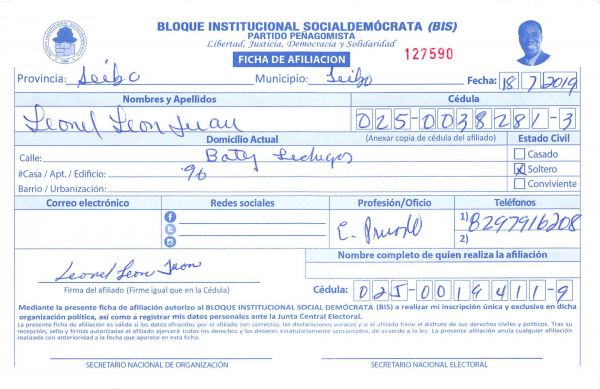 BLOQUE INSTITUCIONAL SOCIALDEMÓCRATA (BIS)
PARTIDO PEÑAGOMISTA
Libertad, Justicia, Democracia y Solidaridad
FICHA DE AFILIACION
127590
Provincia: Seibo Municipio: Seibo Fecha: 18 7 2019
Nombres y Apellidos Cédula
Leonel Leon Juan 025-0038281-3
Domicilio Actual (Anexar copia de cédula del afiliado) Estado Civil
Calle: Batey Lechugas Casado
#Casa / Apt. / Edificio: 96 X Soltero
Barrio / Urbanización: Conviviente
Correo electrónico Redes sociales Profesión/Oficio Teléfonos
E. 1) 8297916208
2)
Nombre completo de quien realiza la afiliación
Leonel Leon Juan
Firma del afiliado (Firme igual que en la Cédula) Cédula: 025-0019411-9
Mediante la presente ficha de afiliación autorizo al BLOQUE INSTITUCIONAL SOCIAL DEMÓCRATA (BIS) a realizar mi inscripción única y exclusiva en dicha
organización política, así como a registrar mis datos personales ante la Junta Central Electoral.
La presente ficha de afiliación es válida si los datos ofrecidos por el afiliado son correctos, las declaraciones voraces y si el afiliado tiene el disfrute de sus derechos civiles y políticos. Tras su
recepción, sello y firmas autorizadas el afiliado ejercerá todos los derechos y los deberes estatutariamente sancionados, de acuerdo a la ley. La presente afiliación anula cualquier afiliación
realizada con anterioridad a la fecha que aparece en esta ficha.
SECRETARIO NACIONAL DE ORGANIZACIÓN SECRETARIO NACIONAL ELECTORAL